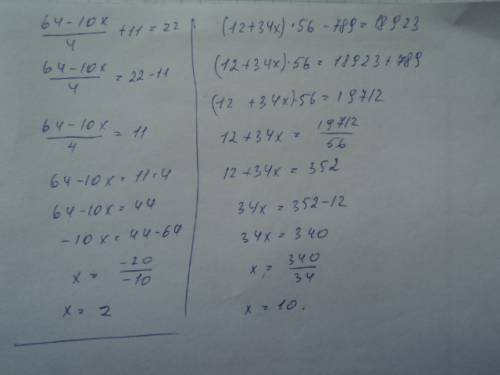 (64-10x)/4 +11=22
(64-10x)/4 = 22-11
(64-10x)/4 = 11
64-10x = 11·4
64-10x = 44
-10x = 44-64
x = -20/-10
x = 2
(12+34x)·56-789=18923
(12+34x)·56 = 18923+789
(12 +34x)·56 = 19712
12+34x = 19712/56
12+34x = 352
34x = 352-12
34x = 340
x = 340/34
x = 10.